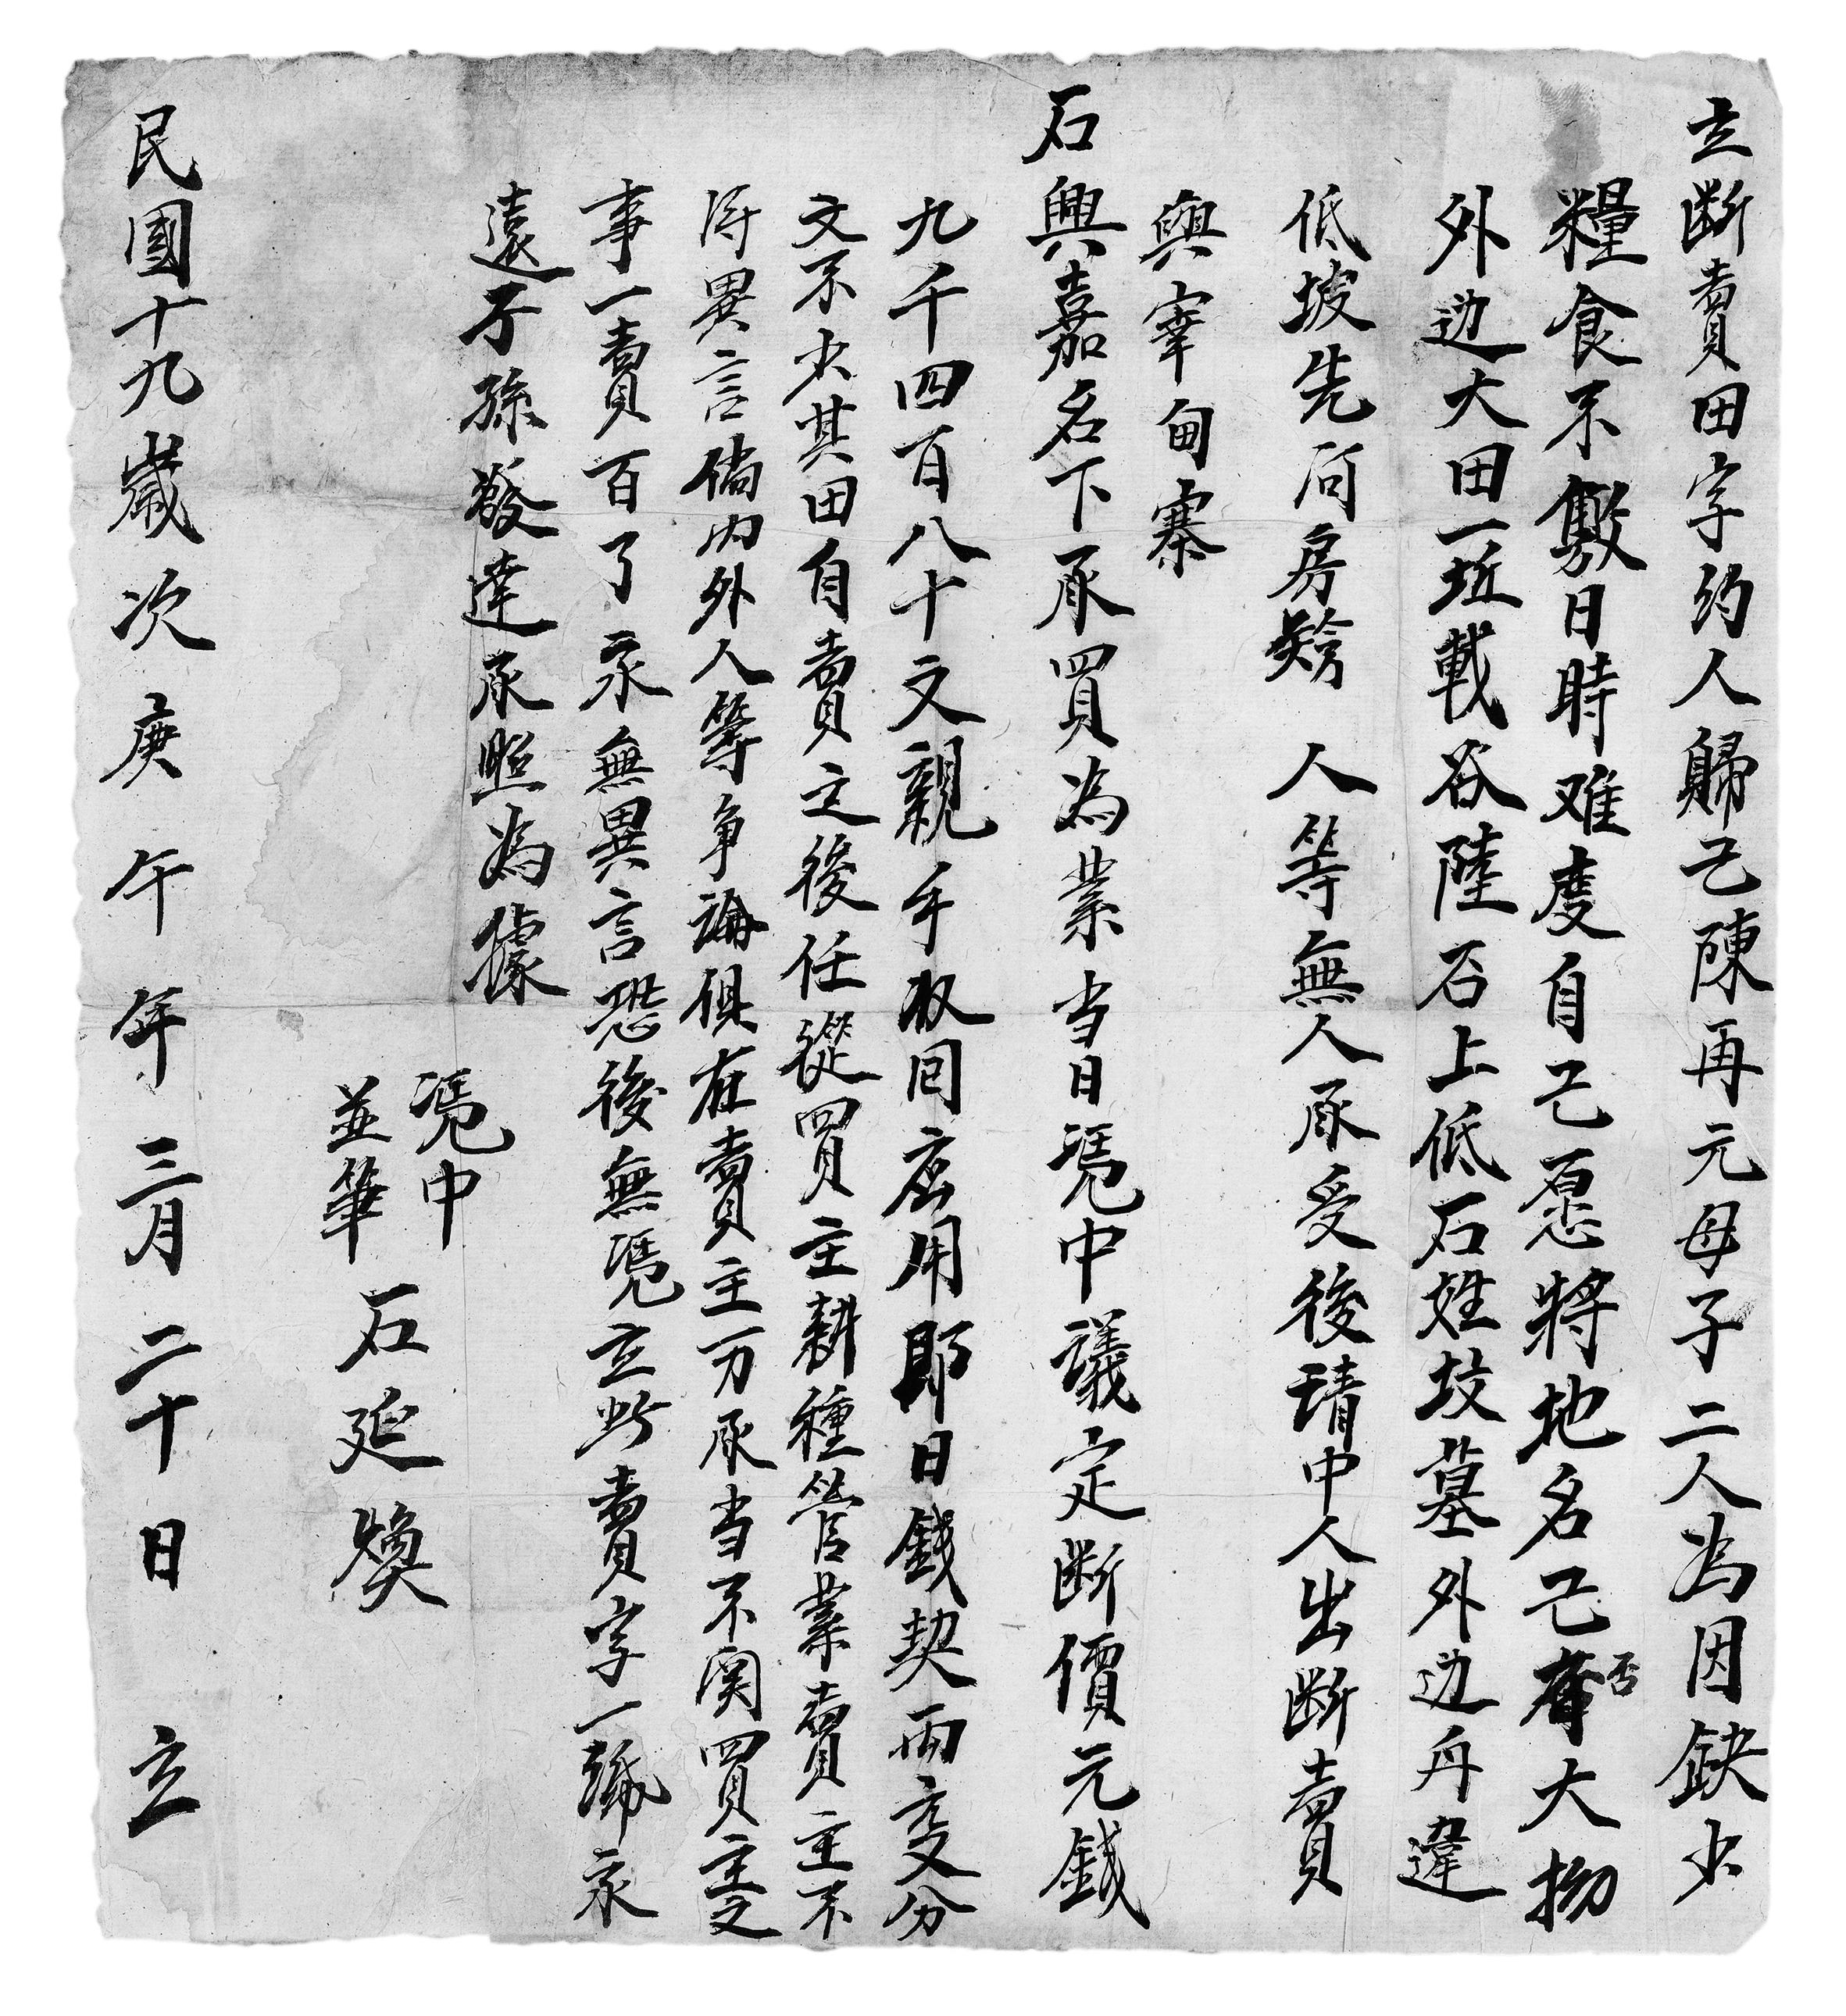 立断賣田字約人歸己陳再元母子二人為因缺少
糧食不敷日時难度自己愿將地名己否大拗
外边大田一坵載谷陸石上低石姓坟墓外边舟違
低坡先问房 人等無人承受後請中人出断賣
與寧甸寨
石興嘉名下承買為業当日凭中議定断價元錢
九千四百八十文親手收囘应用即日錢契両交分
文不少其田自賣之後任從買主耕種管業賣主不
淂異言倘内外人等争論俱在賣主一力承当不関買主之
事一賣百了永無異言恐後無凭立此賣字一紙永
遠子孫發達承照為據
凭中
並筆 石延煥
民國十九歲次庚午年三月二十日 立